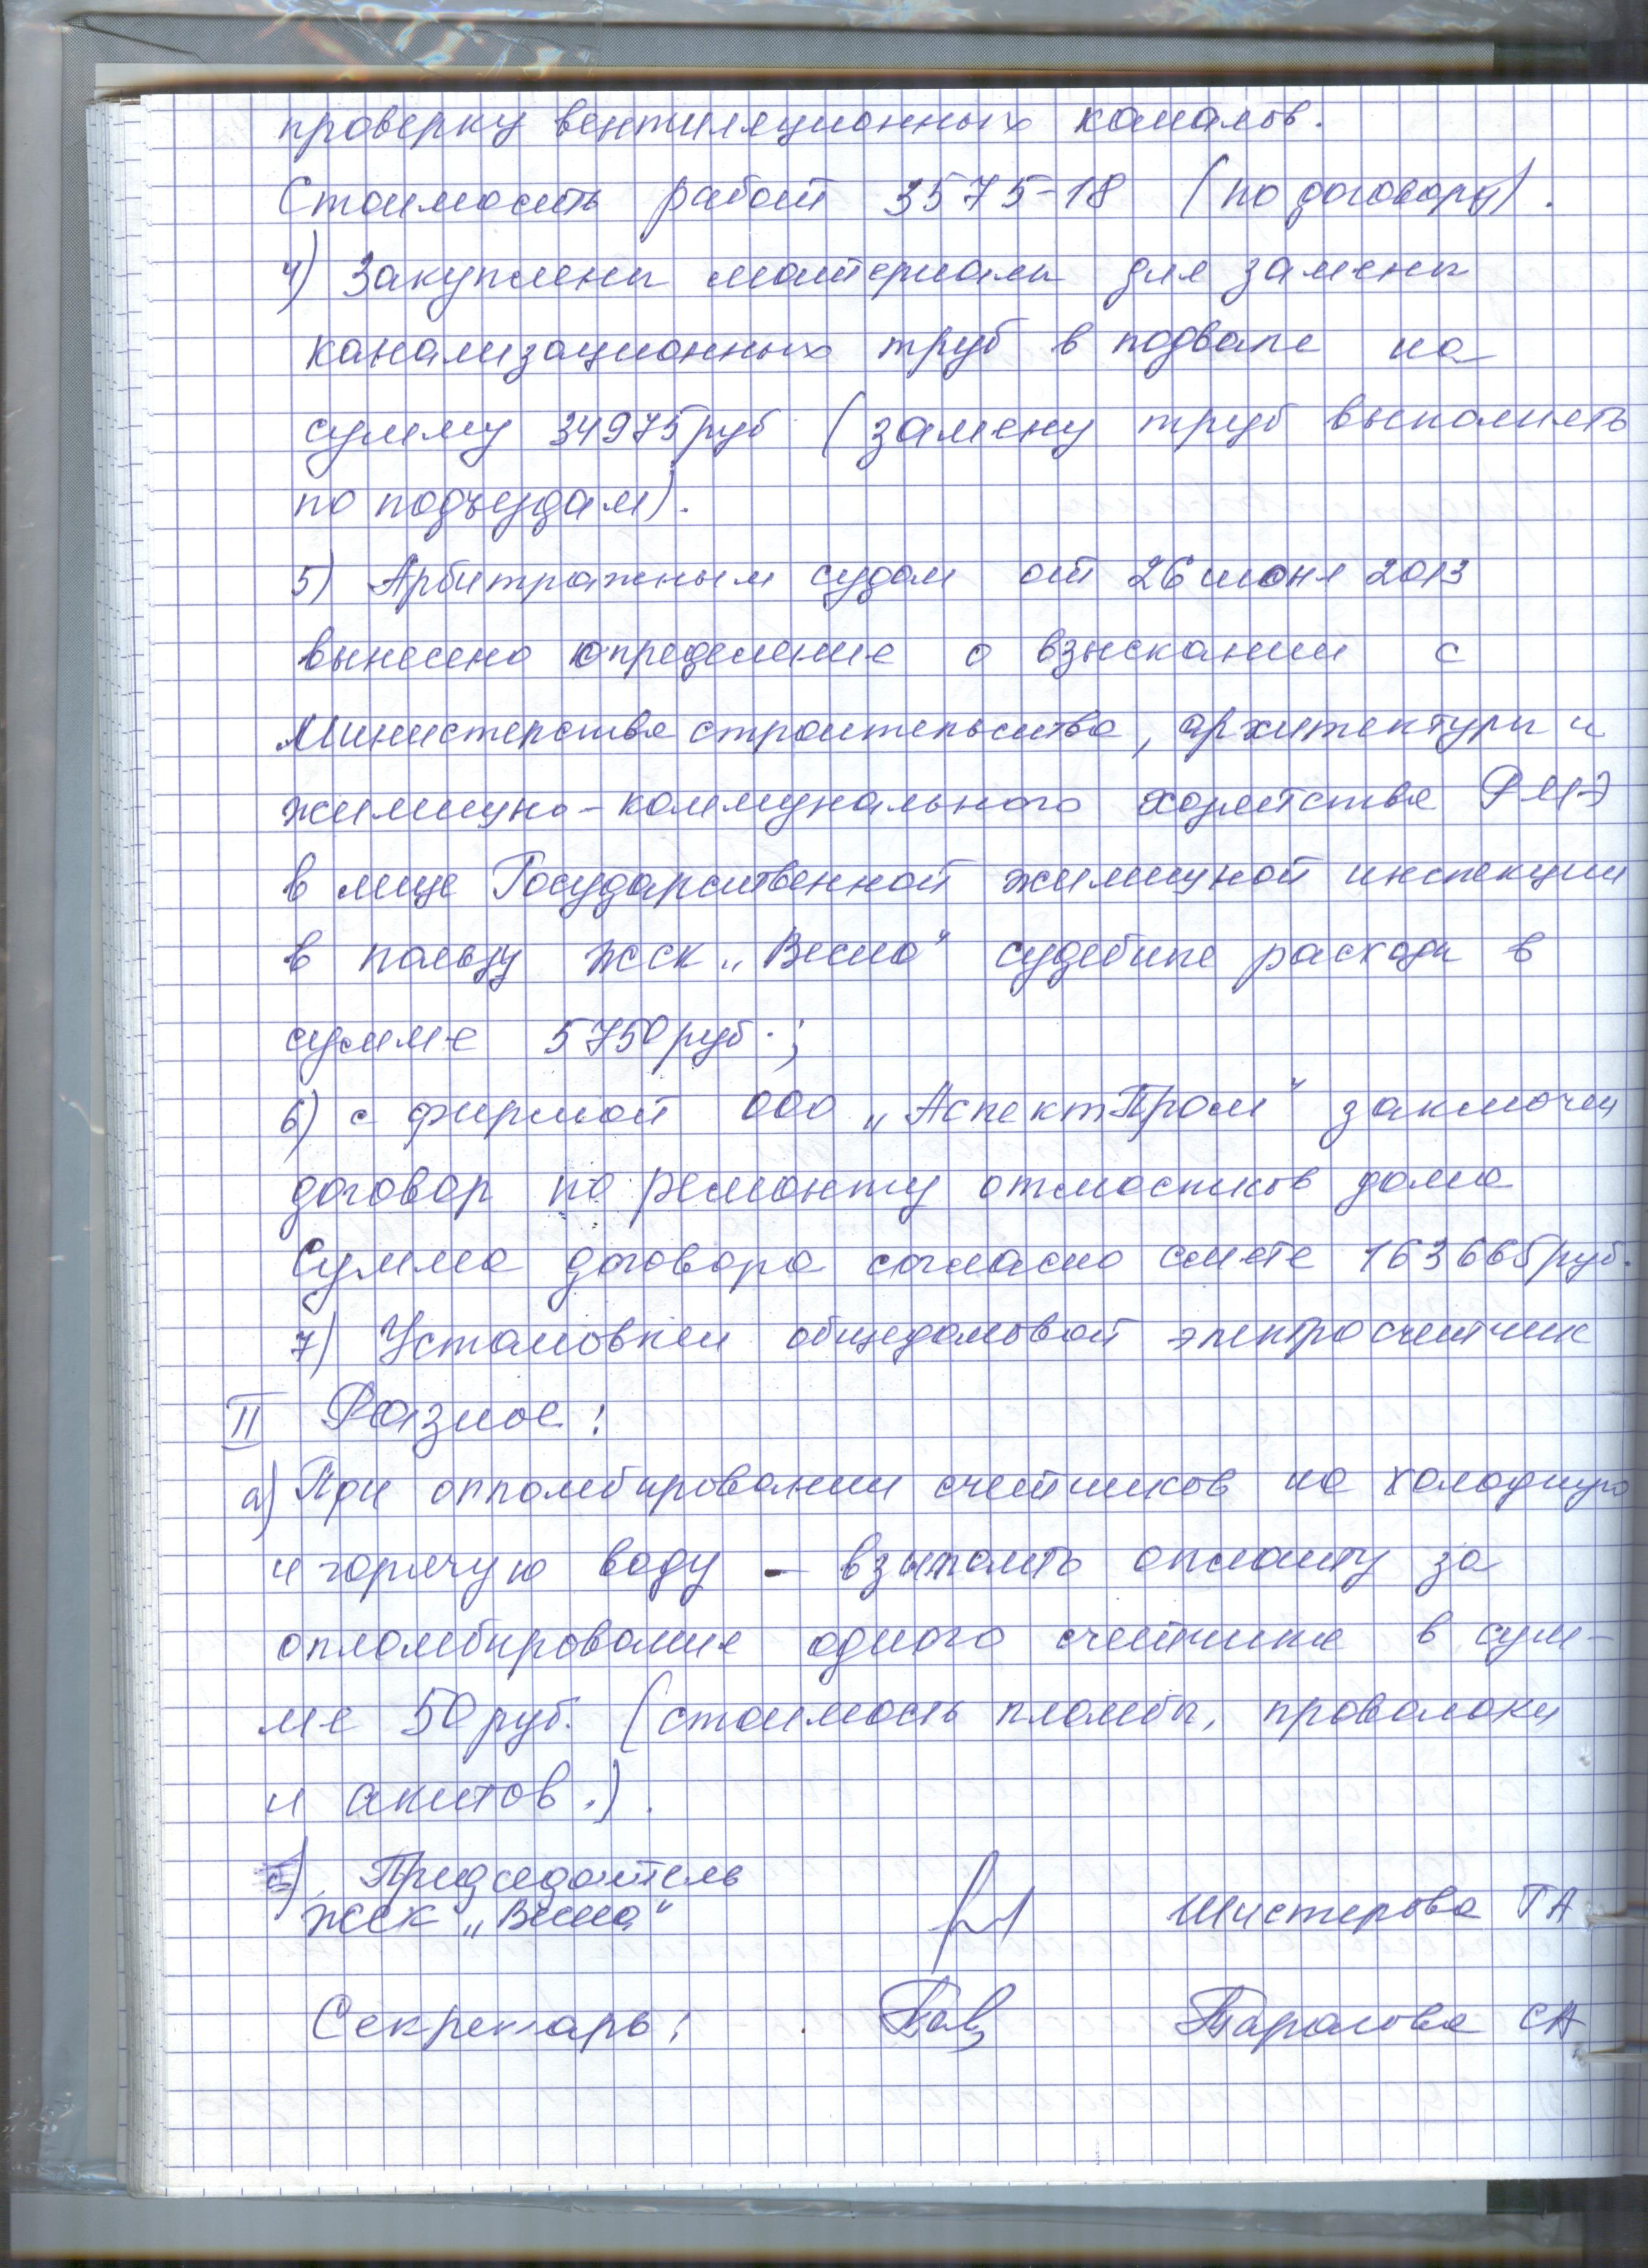 проверку вентиляционных каналов.
Стоимость работ 3575-18 (по договору).
4) Закуплены материалы для замены
канализационных труб в подвале на
сумму 34975 руб (замену труб выполнять
по подъездам).
5) Арбитражным судом от 26 июня 2013
вынесено определение о взыскании с
Министерства строительства, архитектуры и
жилищно-коммунального хозяйства РМЭ
в лице Государственной жилищной инспекции
в пользу жск „Весна" судебные расходы в
сумме 5750 руб.;
6) с фирмой ООО „АспектПром" заключен
договор по ремонту отмостков дома
Сумма договора согласно смете 163665 руб.
7) Установлен общедомовой электросчетчик
II Разное:
а) При опломбировании счетчиков на холодную
и горячую воду – взымать оплату за
опломбирование одного счетчика в сум-
ме 50 руб. (стоимость пломбы, проволоки
и актов.).
Председатель
жск „Весна" Шистерова ГА
Секретарь: Тарасова СА